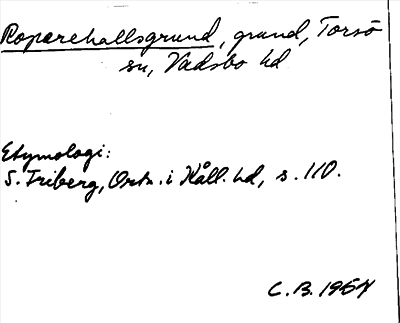 Roparehallsgrund, grund, Torsö
sn, Vadsbo hd
Etymologi:
S. Friberg, Ortn. i Kåll. hd, s. 110.
C. B. 1964